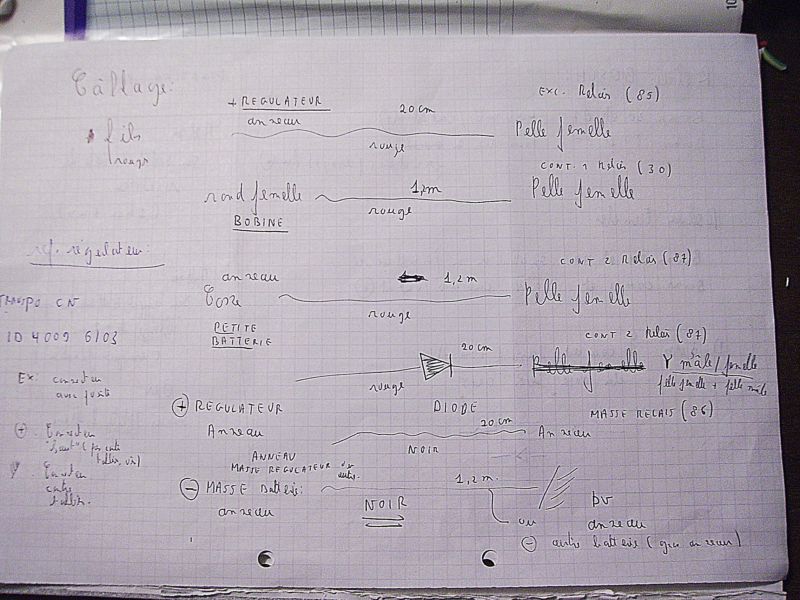 Câllage:
fils
rouge
+ REGULATEUR
anneau
20 cm
rouge
EXC. Relais (85)
Pelle femelle
rond femelle
BOBINE
1,2m
rouge
CONT. 1 Relais (30)
Pelle femelle
ref. régulateur:
TRANSPO CN
ID 4009 6103
anneau
Cosse
PETITE
BATTERIE
1,2 m
rouge
CONT 2 Relais (87)
Pelle femelle
CONT 2 Relais (87)
20 cm
rouge
DIODE
Pelle femelle
Y mâle/femelle
pelle femelle + pelle mâle
+ REGULATEUR
Anneau
20 cm
NOIR
MASSE RELAIS (86)
Anneau
ANNEAU
MASSE REGULATEUR
- MASSE Batterie:
anneau
1,2 m.
NOIR
ou
anneau
- autre batterie (gros anneau)